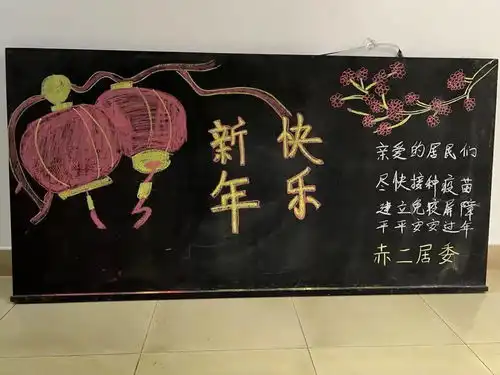 新年
快乐
亲爱的居民们
尽快接种疫苗
建立免疫屏障
平平安安过年
赤二居委